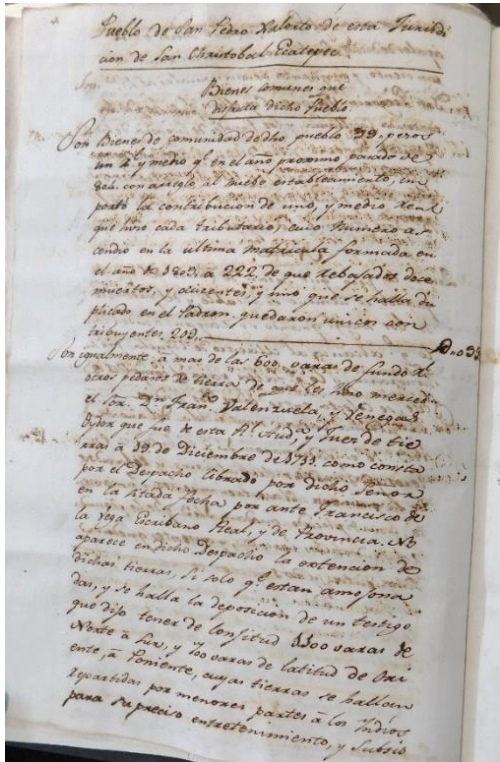 Pueblo de San Pedro Xalosto de esta Jurisdi
cion de San Christobal Ecatepec
Bienes comunes que
disfruta dicho Pueblo
Son Bienes de comunidad de dho. pueblo 39, pesos
un rl. y medio qe. en el año proximo pasado de
con arreglo al nuebo establecimiento, im
portó la contribucion de uno, y medio real
que hizo cada tributario, cuio numero as
cendio en la ultima Matricula formada en
el año de 1803, a 222, de que rebajados doce
muertos, y aucentes, y uno que se halla du
plicado en el Padron, quedaron unicos con
tribuyentes 209,
Son igualmente a mas de las 600. varas de fundo
otros pedazos de tierra de que les hizo merced
el Sor. Dn. Franco. Valenzuela, y Venegas
Oydor que fue de esta Rl. Auda. y Juez de tie
rras a 19. de Diciembre de 1711. como consta
por el Despacho librado por dicho Señor
en la citada fecha por ante Francisco de
la Vega Escribano Real, y de Provincia. No
aparece en dicho Despacho la extencion de
dichas tierras, si solo qe. estan amojona
das, y se halla la deposicion de un testigo
que dijo tener de lonjitud 1300 varas de
Norte a Sur, y 700 varas de latitud de Ori
ente, á Poniente, cuyas tierras se hallan
repartidas por menores partes á los Indios
para su preciso entretenimiento, y Subsis